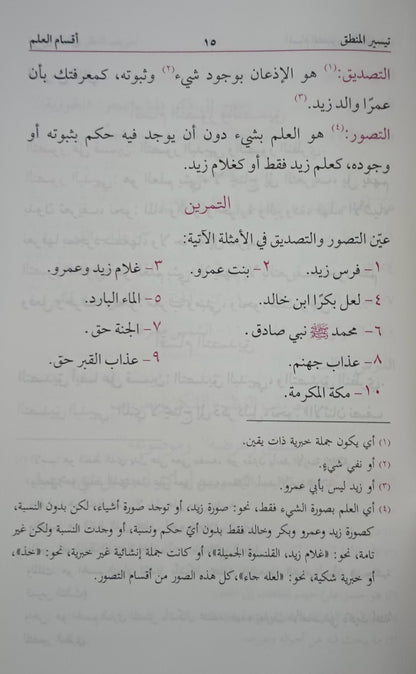 تيسير المنطق ١٥ أقسام العلم
التصديق:(١) هو الإذعان بوجود شيء(٢) وثبوته، كمعرفتك بأن
عمرًا والد زيد.(٣)
التصور:(٤) هو العلم بشيء دون أن يوجد فيه حكم بثبوته أو
وجوده، كعلم زيد فقط أو كغلام زيد.
التمرين
عيّن التصور والتصديق في الأمثلة الآتية:
١- فرس زيد. ٢- بنت عمرو. ٣- غلام زيد وعمرو.
٤- لعل بكرًا ابن خالد. ٥- الماء البارد.
٦- محمد ﷺ نبي صادق. ٧- الجنة حق.
٨- عذاب جهنم. ٩- عذاب القبر حق.
١٠- مكة المكرمة.
(١) أي يكون جملة خبرية ذات يقين.
(٢) أو نفي شيءٍ.
(٣) أو زيد ليس بأبي عمرو.
(٤) أي العلم بصورة الشيء فقط، نحو: صورة زيد، أو توجد صورة أشياء، لكن بدون النسبة،
كصورة زيد وعمرو وبكر وخالد فقط بدون أيّ حكم ونسبة، أو وجدت النسبة ولكن غير
تامة، نحو: «غلام زيد، القلنسوة الجميلة»، أو كانت جملة إنشائية غير خبرية، نحو: «خذ»،
أو خبرية شكية، نحو: «لعله جاء»، كل هذه الصور من أقسام التصور.